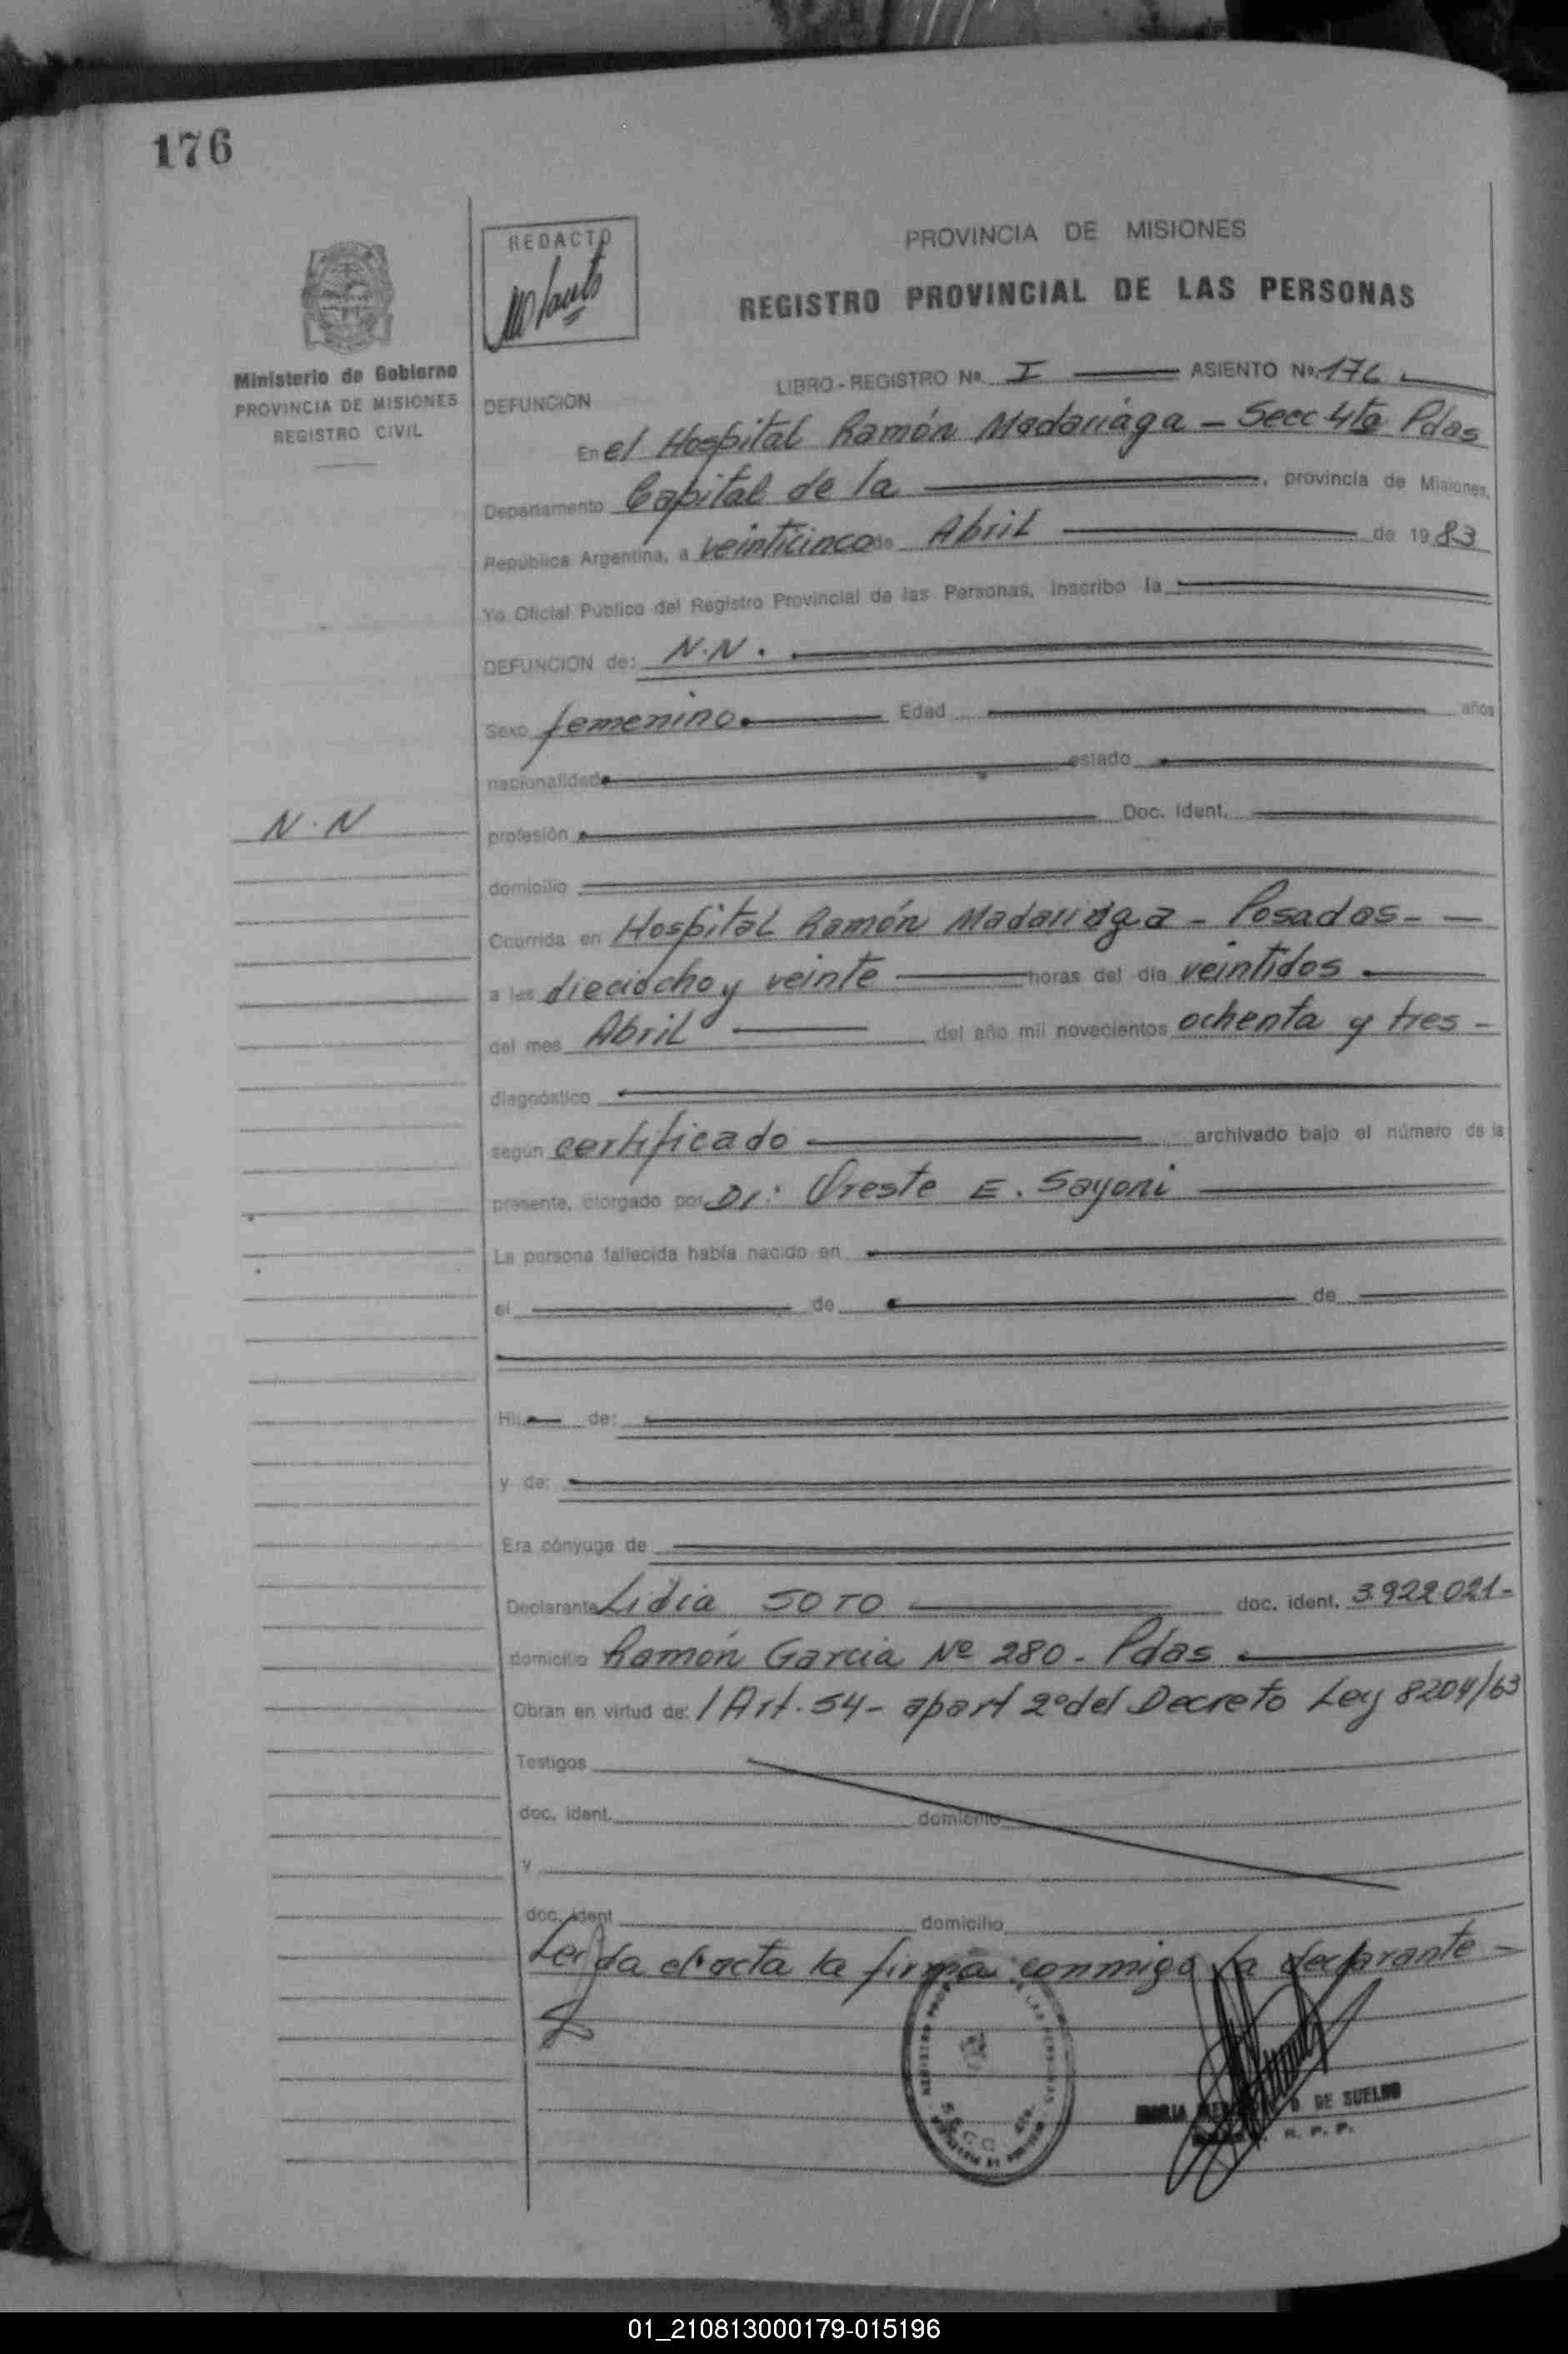 176
Ministerio de Gobierno
PROVINCIA DE MISIONES
REGISTRO CIVIL
N.N
REDACTO
PROVINCIA DE MISIONES
REGISTRO PROVINCIAL DE LAS PERSONAS
LIBRO-REGISTRO Nº. I ASIENTO Nº. 176
DEFUNCION
En el Hospital Ramón Madariaga - Secc 4ta Pdas
Departamento Capital de la , provincia de Misiones,
República Argentina, a veinticinco de Abril de 1983
Yo Oficial Público del Registro Provincial de las Personas, inscribo la
DEFUNCION de: N.N.
Sexo femenino. Edad años
nacionalidad estado
profesión Doc. Ident.
domicilio
Ocurrida en Hospital Ramón Madariaga - Posadas - -
a las dieciocho y veinte horas del día veintidos
del mes Abril del año mil novecientos ochenta y tres -
diagnóstico
según certificado archivado bajo el número de la
presente, otorgado por Dr: Oreste E. Sayoni
La persona fallecida había nacido en
el de de
Hij de:
y de:
Era cónyuge de
Declarante Lidia SOTO doc. ident. 3.922.021-
domicilio Ramón Garcia Nº 280 - Pdas
Obran en virtud de: / Art. 54 - apart 2º del Decreto Ley 8204/63
Testigos
doc. ident. domicilio
y
doc. ident domicilio
Leida el acta la firma conmigo la declarante -
DE SUELDO
R. P. P.
01_210813000179-015196